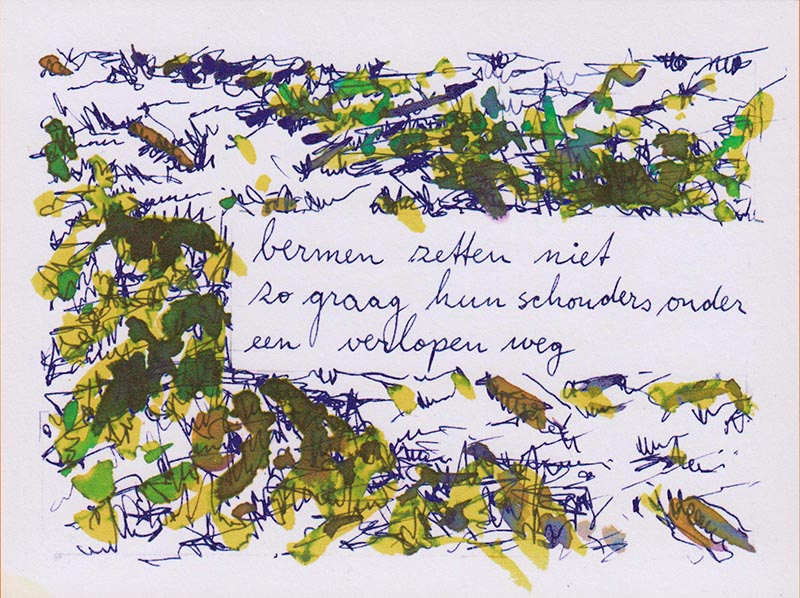 bermen zetten niet
zo graag hun schouders onder
een verlopen weg